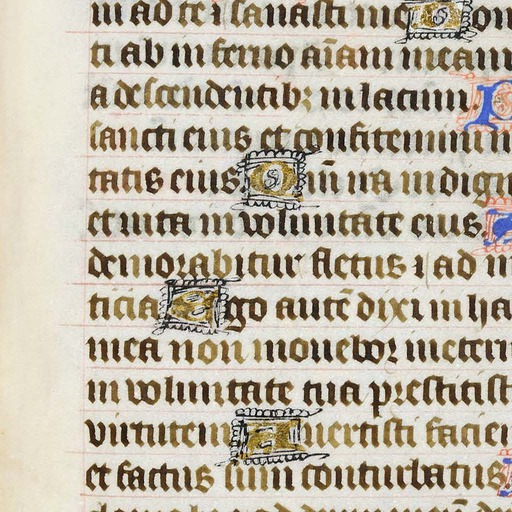 m ad te ⁊ sanasti me D
ti ab inferno aīam meam
a descendentibꝫ in lacum. P
sancti eius et confitemini
tatis eius Qm̄ ira in dign
et uita in voluntate eius
demorabitur fletus ⁊ ad m
ticia Ego autē dixi in ha
mea non mouebor in etern
in voluntate tua prestitist
virtutem Auertisti faciem
et factus sum conturbatus